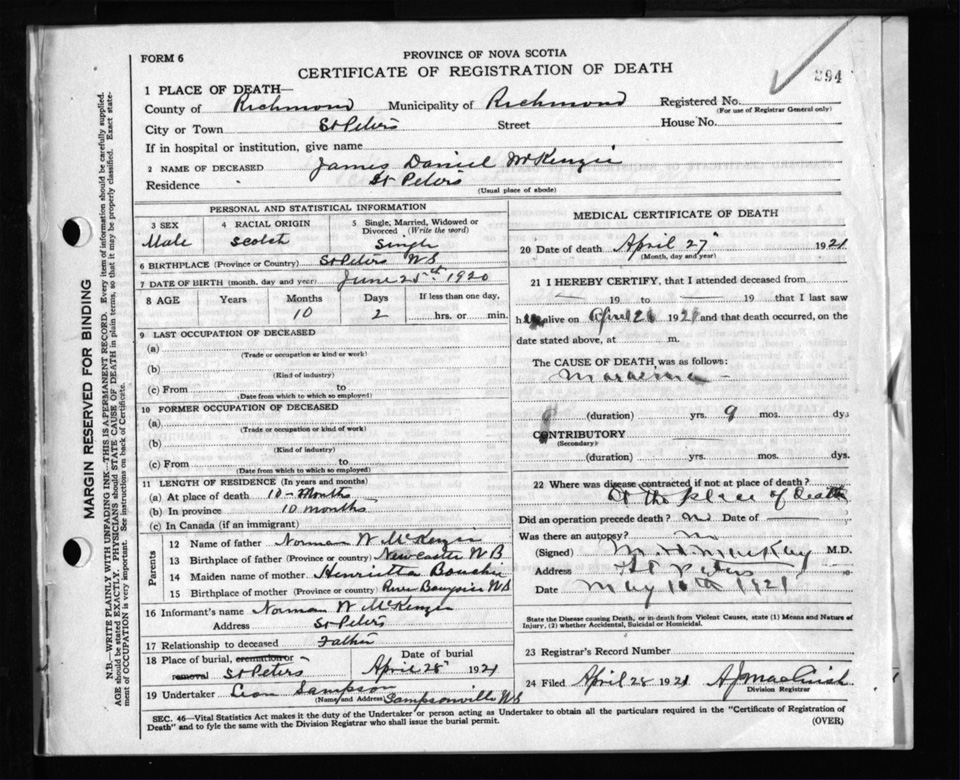 FORM 6
PROVINCE OF NOVA SCOTIA
CERTIFICATE OF REGISTRATION OF DEATH
394
1 PLACE OF DEATH—
County of Richmond Municipality of Richmond Registered No.
(For use of Registrar General only)
City or Town St Peters Street House No.
If in hospital or institution, give name
2 NAME OF DECEASED James Daniel McKenzie
Residence St Peters
(Usual place of abode)
PERSONAL AND STATISTICAL INFORMATION
3 SEX Male
4 RACIAL ORIGIN Scotch
5 Single, Married, Widowed or Divorced (Write the word) Single
6 BIRTHPLACE (Province or Country) St Peters N S
7 DATE OF BIRTH (month, day and year) June 25th 1920
8 AGE Years Months 10 Days 2 If less than one day, hrs. or min.
9 LAST OCCUPATION OF DECEASED
(a)
(Trade or occupation or kind or work)
(b)
(Kind of industry)
(c) From to
(Date from which to which so employed)
10 FORMER OCCUPATION OF DECEASED
(a)
(Trade or occupation or kind of work)
(b)
(Kind of industry)
(c) From to
(Date from which to which so employed)
11 LENGTH OF RESIDENCE (In years and months)
(a) At place of death 10 - Months
(b) In province 10 months
(c) In Canada (if an immigrant)
Parents
12 Name of father Norman W McKenzie
13 Birthplace of father (Province or country) Newcastle N B
14 Maiden name of mother Henrietta Boucher
15 Birthplace of mother (Province or country) River Bourgeois N S
16 Informant's name Norman W McKenzie
Address St Peters
17 Relationship to deceased Father
18 Place of burial, cremation or removal St Peters Date of burial April 28 1921
19 Undertaker Leon Sampson
(Name and Address) Sampsonville N S
MEDICAL CERTIFICATE OF DEATH
20 Date of death April 27" 1921
(Month, day and year)
21 I HEREBY CERTIFY, that I attended deceased from
— 19 to — 19 that I last saw
h alive on April 26 1921 and that death occurred, on the
date stated above, at m.
The CAUSE OF DEATH was as follows:
(duration) yrs. 9 mos. dys
CONTRIBUTORY —
(Secondary)
(duration) yrs. mos. dys.
22 Where was disease contracted if not at place of death?
At the place of Death
Did an operation precede death? No Date of —
Was there an autopsy? no
(Signed) M. D. MacKay M.D.
Address St Peters
Date May 10th 1921
State the Disease causing Death, or in death from Violent Causes, state (1) Means and Nature of
Injury, (2) whether Accidental, Suicidal or Homicidal.
23 Registrar's Record Number
24 Filed April 28 1921
Division Registrar
SEC. 46—Vital Statistics Act makes it the duty of the Undertaker or person acting as Undertaker to obtain all the particulars required in the "Certificate of Registration of
Death" and to fyle the same with the Division Registrar who shall issue the burial permit.
(OVER)
MARGIN RESERVED FOR BINDING
N.B.—WRITE PLAINLY WITH UNFADING INK—THIS IS A PERMANENT RECORD. Every item of information should be carefully supplied.
AGE should be stated EXACTLY. PHYSICIANS should STATE CAUSE OF DEATH in plain terms, so that it may be properly classified. Exact state-
ment of OCCUPATION is very important. See instructions on back of Certificate.